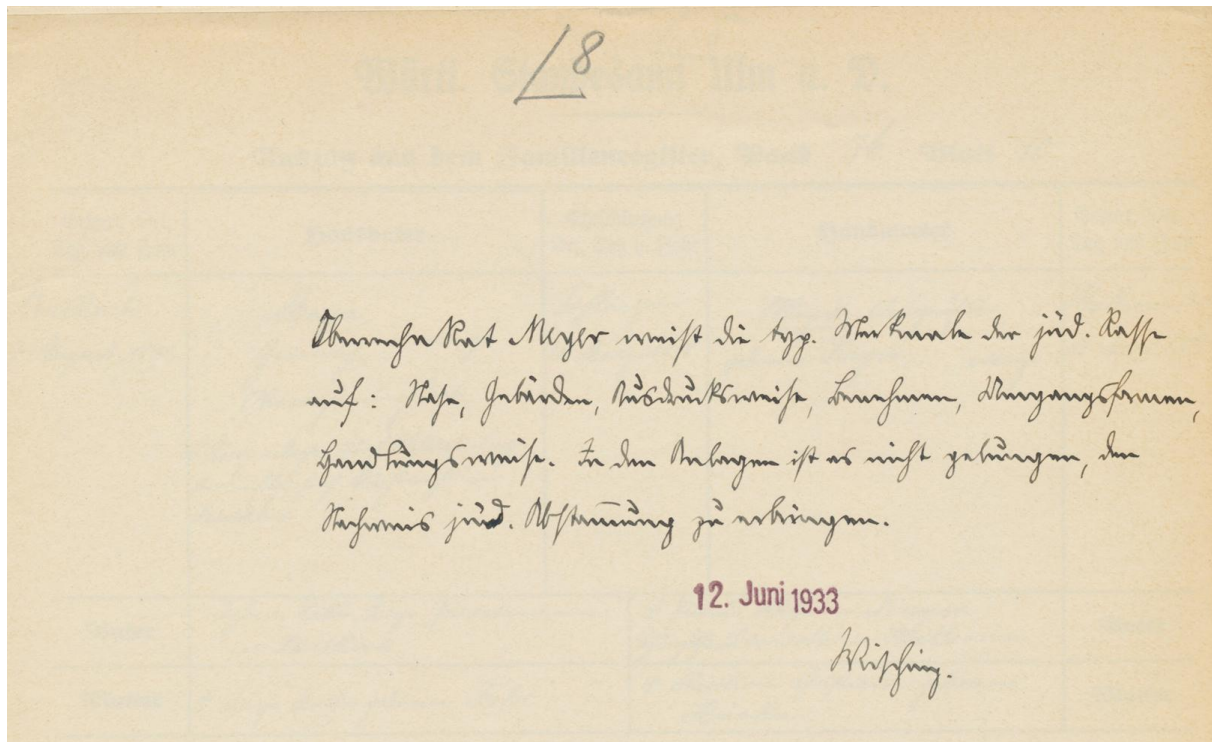 8
Oberrechn Rat Meyer weist die typ. Merkmale der jüd. Rasse
auf: Nase, Gebärden, Ausdrucksweise, Benehmen, Umgangsformen,
Handlungsweise. In den Anlagen ist es nicht gelungen, den
Nachweis jüd. Abstammung zu erbringen.
12. Juni 1933